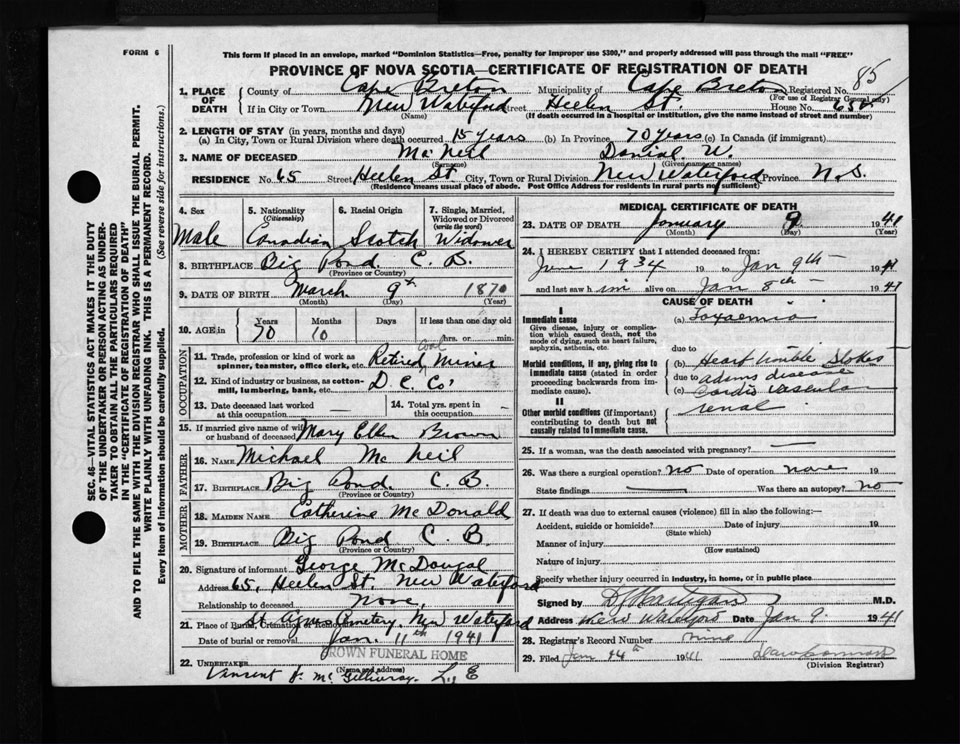 FORM 6
This form if placed in an envelope, marked "Dominion Statistics—Free, penalty for improper use $300," and properly addressed will pass through the mail "FREE"
PROVINCE OF NOVA SCOTIA—CERTIFICATE OF REGISTRATION OF DEATH
85
1. PLACE OF DEATH County of Cape Breton Municipality of Cape Breton Registered No.
(For use of Registrar General only)
If in City or Town New Waterford Street Heelen St. House No. 65
(Name) (If death occurred in a hospital or institution, give the name instead of street and number)
2. LENGTH OF STAY (in years, months and days)
(a) In City, Town or Rural Division where death occurred 15 years (b) In Province 70 years (c) In Canada (if immigrant)
3. NAME OF DECEASED Mc Neil Danial W.
(Surname) (Given name or names)
RESIDENCE No. 65 Street Heelen St. City, Town or Rural Division New Waterford Province N.S.
(Residence means usual place of abode. Post Office Address for residents in rural parts not sufficient)
4. Sex 5. Nationality (Citizenship) 6. Racial Origin 7. Single, Married, Widowed or Divorced (write the word)
Male Canadian Scotch Widower
8. BIRTHPLACE Big Pond C. B.
(Province or Country)
9. DATE OF BIRTH March 9th 1870
(Month) (Day) (Year)
10. AGE in Years Months Days If less than one day old
70 10 hrs. or min.
11. Trade, profession or kind of work as spinner, teamster, office clerk, etc. Retired coal Miner
12. Kind of industry or business, as cotton-mill, lumbering, bank, etc. D. C. Co.
13. Date deceased last worked at this occupation — 14. Total years spent in this occupation -
OCCUPATION
15. If married give name of wife or husband of deceased Mary Ellen Brown
FATHER
16. NAME Michael Mc Neil
17. BIRTHPLACE Big Pond C. B.
(Province or Country)
MOTHER
18. MAIDEN NAME Catherine Mc Donald
19. BIRTHPLACE Big Pond C B
(Province or Country)
20. Signature of informant George McDougal
Address 65, Heelen St. New Waterford
Relationship to deceased None
21. Place of Burial, Cremation or Removal Cemetery, New Waterford
Date of burial or removal Jan. 11th 1941
BROWN FUNERAL HOME
22. UNDERTAKER
(Name and address)
Vinsent J. Mc Gillivray. L, E
MEDICAL CERTIFICATE OF DEATH
23. DATE OF DEATH January 9 1941
(Month) (Day) (Year)
24. I HEREBY CERTIFY that I attended deceased from:
June 1934 19 to Jan 9th 1941
and last saw him alive on Jan 8th 1941
CAUSE OF DEATH
I
Immediate cause (a) Toxaemia
Give disease, injury or complication which caused death, not the mode of dying, such as heart failure, asphyxia, asthenia, etc.
due to
Morbid conditions, if any, giving rise to immediate cause (stated in order proceeding backwards from immediate cause).
(b) Heart trouble Stokes
due to adams disease
(c) Cardio vascula
renal
II
Other morbid conditions (if important) contributing to death but not causally related to immediate cause.
25. If a woman, was the death associated with pregnancy? —
26. Was there a surgical operation? no Date of operation none 19
State findings — Was there an autopsy? no
27. If death was due to external causes (violence) fill in also the following:—
Accident, suicide or homicide? Date of injury 19
(State which)
Manner of injury
(How sustained)
Nature of injury
Specify whether injury occurred in industry, in home, or in public place
Signed by M.D.
Address New Waterford Date Jan 9 1941
28. Registrar's Record Number nine
29. Filed Jan 14th 1941
(Division Registrar)
SEC. 46—VITAL STATISTICS ACT MAKES IT THE DUTY
OF THE UNDERTAKER OR PERSON ACTING AS UNDERTAKER TO OBTAIN ALL THE PARTICULARS REQUIRED
IN THE "CERTIFICATE OF REGISTRATION OF DEATH"
AND TO FILE THE SAME WITH THE DIVISION REGISTRAR WHO SHALL ISSUE THE BURIAL PERMIT.
WRITE PLAINLY WITH UNFADING INK. THIS IS A PERMANENT RECORD.
Every item of information should be carefully supplied. (See reverse side for instructions.)